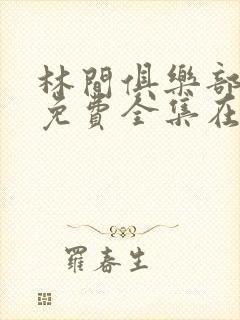 林間俱樂部
免費全集在
羅春生